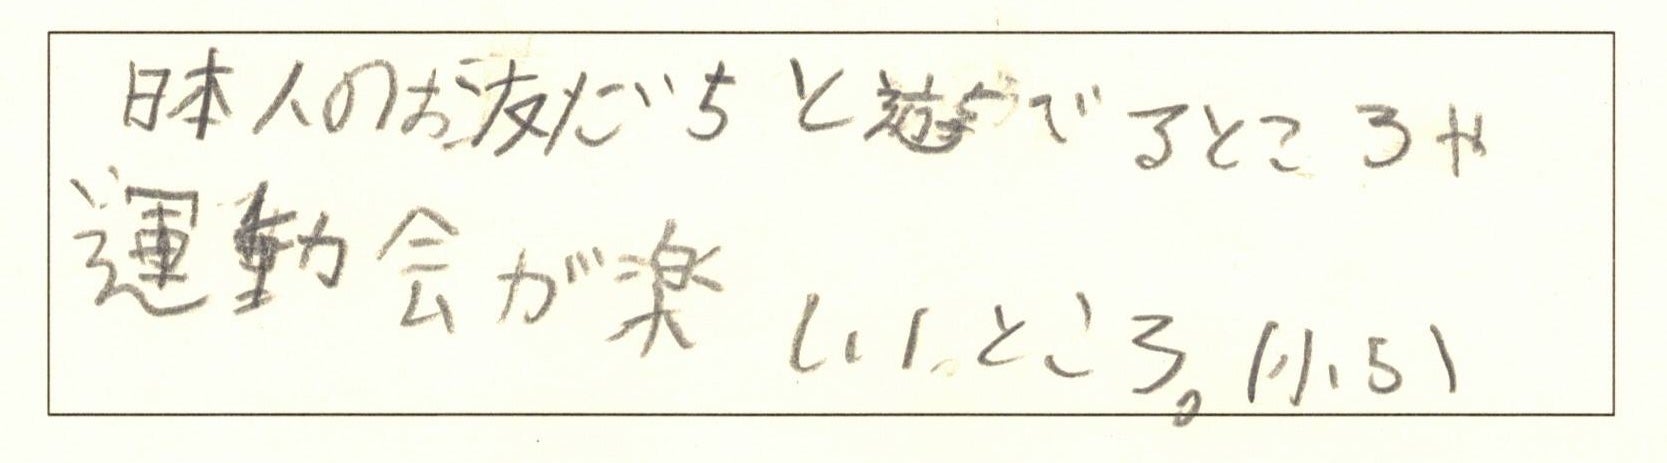 日本人のお友だちと遊べでるところや
運動会が楽しいところ。(小5)